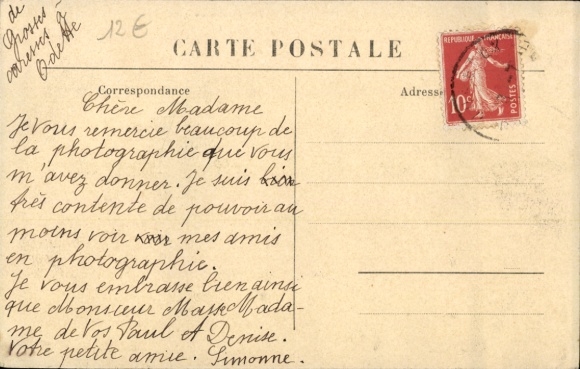 de
Grosses
caresses à
Odette
12€
CARTE POSTALE
Correspondance
Adress
REPUBLIQUE FRANÇAISE
10c
POSTES
Chère Madame
Je vous remercie beaucoup de
la photographie que vous
m'avez donner. Je suis bien
très contente de pouvoir au
moins voir voir mes amis
en photographie.
Je vous embrasse bien ainsi
que Monsieur Masse Mada-
me, de Vos Paul et Denise.
Votre petite amie. Simonne.